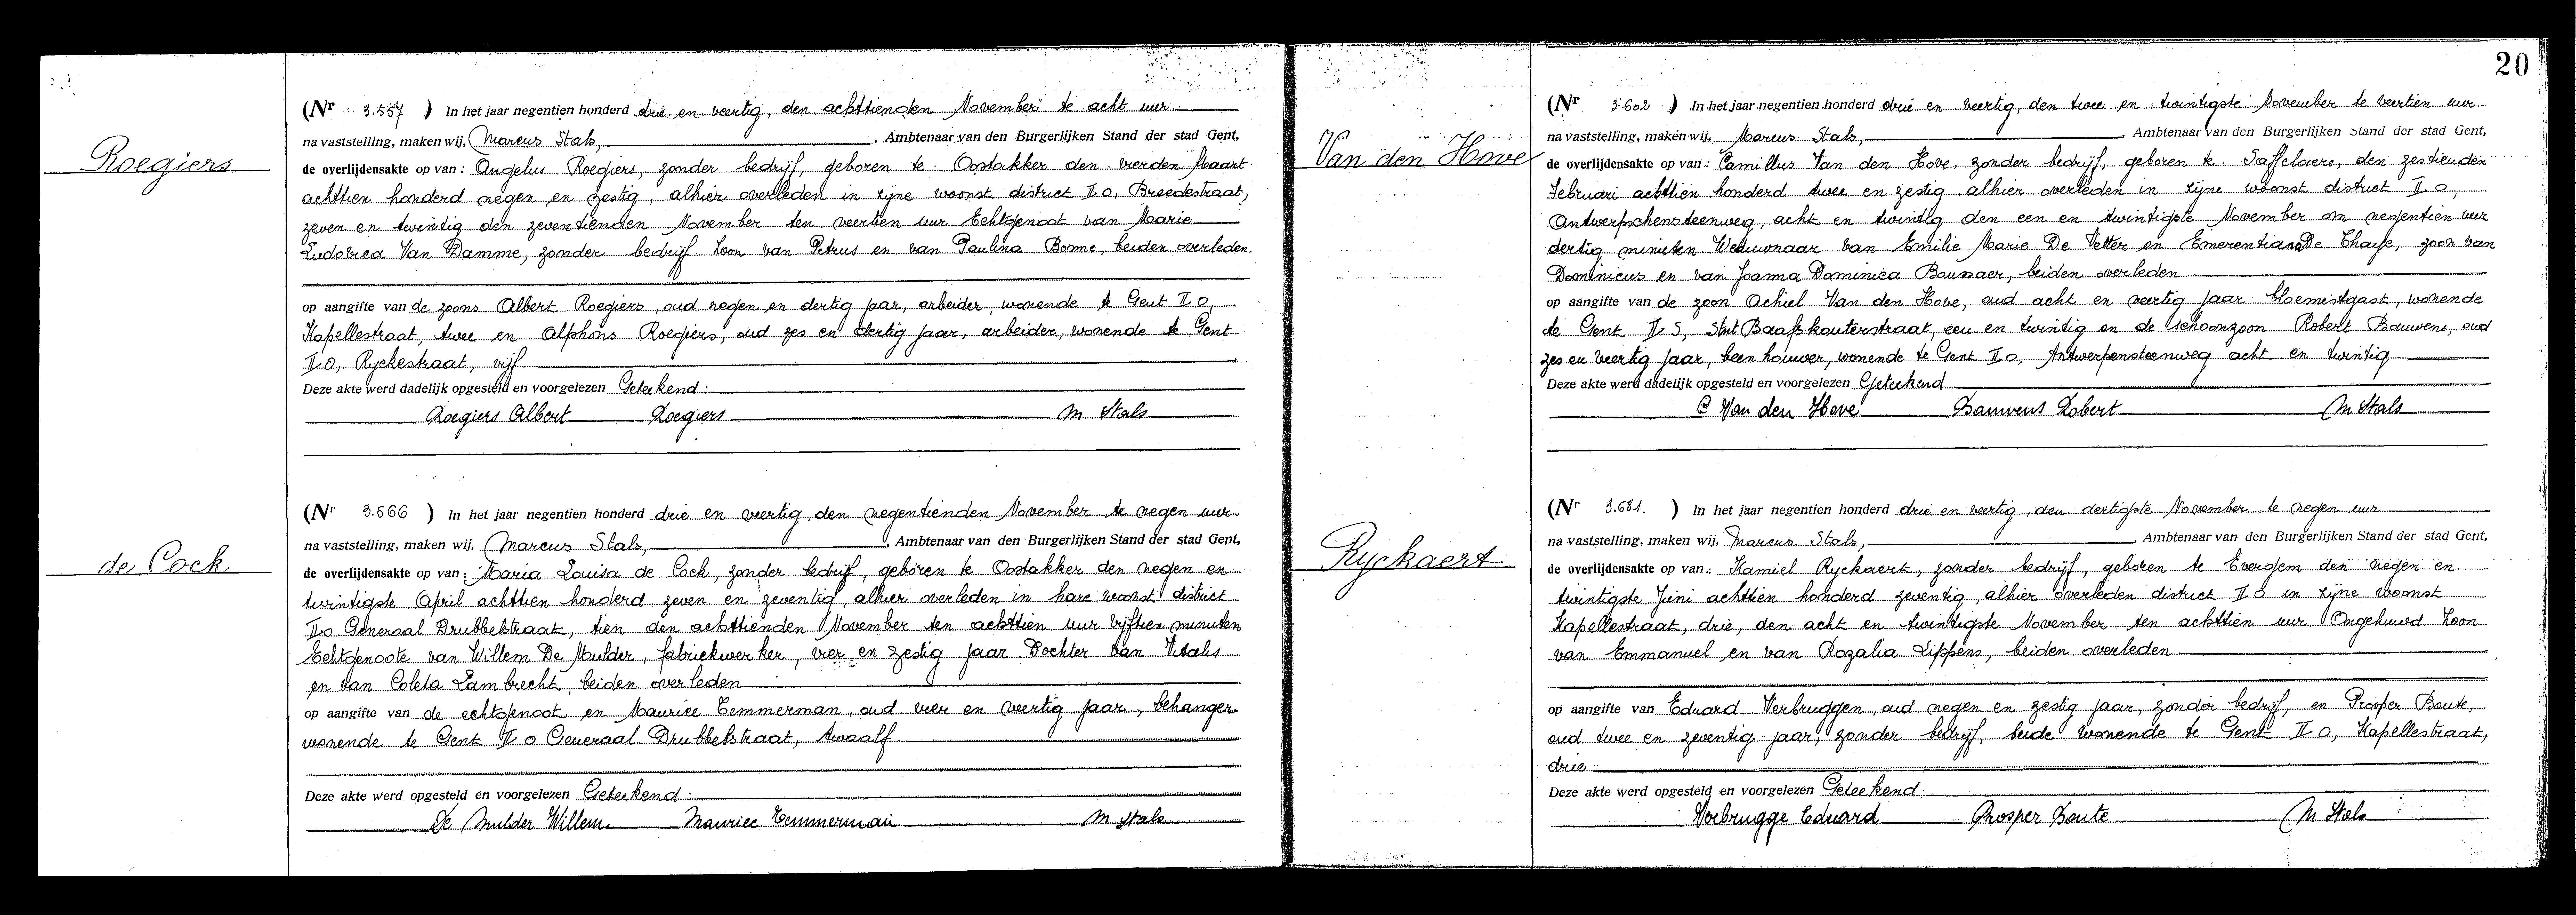 Roegiers
(Nr 3.557 ) In het jaar negentien honderd drie en veertig, den achttienden November te acht uur.
na vaststelling, maken wij, Marcus Stals, Ambtenaar van den Burgerlijken Stand der stad Gent,
de overlijdensakte op van : Angelus Roegiers, zonder bedrijf, geboren te Oostakker den vierden Maart
achttien honderd negen en zestig, alhier overleden in zijne woonst district II O, Breedestraat,
zeven en twintig den zeventienden November ten veertien uur Echtgenoot van Marie
Ludovica Van Damme, zonder bedrijf Zoon van Petrus en van Paulina Bonne, beiden overleden.
op aangifte van de zoons Albert Roegiers, oud negen en dertig jaar, arbeider, wonende te Gent II O,
Kapellestraat, twee en Alphons Roegiers, oud zes en dertig jaar, arbeider, wonende te Gent
II O, Ryckestraat, vijf
Deze akte werd dadelijk opgesteld en voorgelezen Geteekend :
Roegiers Albert Roegiers M Stals
de Cock
(Nr 3.566 ) In het jaar negentien honderd drie en veertig, den negentienden November te negen uur.
na vaststelling, maken wij, Marcus Stals, Ambtenaar van den Burgerlijken Stand der stad Gent,
de overlijdensakte op van : Maria Louisa de Cock, zonder bedrijf, geboren te Oostakker den negen en
twintigste April achttien honderd zeven en zeventig, alhier overleden in hare woonst district
II O Generaal Drubbelstraat, tien den achttienden November ten achttien uur vijftien minuten
Echtgenoote van Willem De Mulder, fabriekwerker, vier en zestig jaar Dochter van Vitalis
en van Coleta Lambrecht, beiden overleden
op aangifte van de echtgenoot en Maurice Temmerman, oud vier en veertig jaar, behanger
wonende te Gent II O Generaal Drubbelstraat, twaalf
Deze akte werd opgesteld en voorgelezen Geteekend :
De Mulder Willem Maurice Temmerman M Stals
20
Van den Hove
(Nr 3602 ) In het jaar negentien honderd drie en veertig, den twee en twintigste November te veertien uur
na vaststelling, maken wij, Marcus Stals, Ambtenaar van den Burgerlijken Stand der stad Gent,
de overlijdensakte op van : Camillus Van den Hove, zonder bedrijf, geboren te Saffelaere, den zestienden
Februari achttien honderd twee en zestig, alhier overleden in zijne woonst district II O,
Antwerpschensteenweg, acht en twintig den een en twintigste November om negentien uur
dertig minuten Weduwnaar van Emilie Marie De Vetter en Emerentiana De Chaye, zoon van
Dominicus en van Joanna Dominica Boussaer, beiden overleden
op aangifte van de zoon Achiel Van den Hove, oud acht en veertig jaar bloemistgast, wonende
te Gent II S, Sint Baafskouterstraat, een en twintig en de schoonzoon Robert Bauwens, oud
zes en veertig jaar, beenhouwer, wonende te Gent II O, Antwerpensteenweg acht en twintig
Deze akte werd dadelijk opgesteld en voorgelezen Geteekend
C Van den Hove Bauwens Robert M Stals
Ryckaert
(Nr 3.681. ) In het jaar negentien honderd drie en veertig, den dertigste November te negen uur
na vaststelling, maken wij, Marcus Stals, Ambtenaar van den Burgerlijken Stand der stad Gent,
de overlijdensakte op van : Kamiel Ryckaert, zonder bedrijf, geboren te Evergem den negen en
twintigste Juni achttien honderd zeventig, alhier overleden district II O in zijne woonst
Kapellestraat, drie, den acht en twintigste November ten achttien uur Ongehuwd Zoon
van Emmanuel en van Rozalia Lippens, beiden overleden
op aangifte van Eduard Verbruggen, oud negen en zestig jaar, zonder bedrijf, en Prosper Baute,
oud twee en zeventig jaar, zonder bedrijf, beide wonende te Gent II O, Kapellestraat,
drie
Deze akte werd opgesteld en voorgelezen Geteekend :
Verbrugge Eduard Prosper Baute M Stals